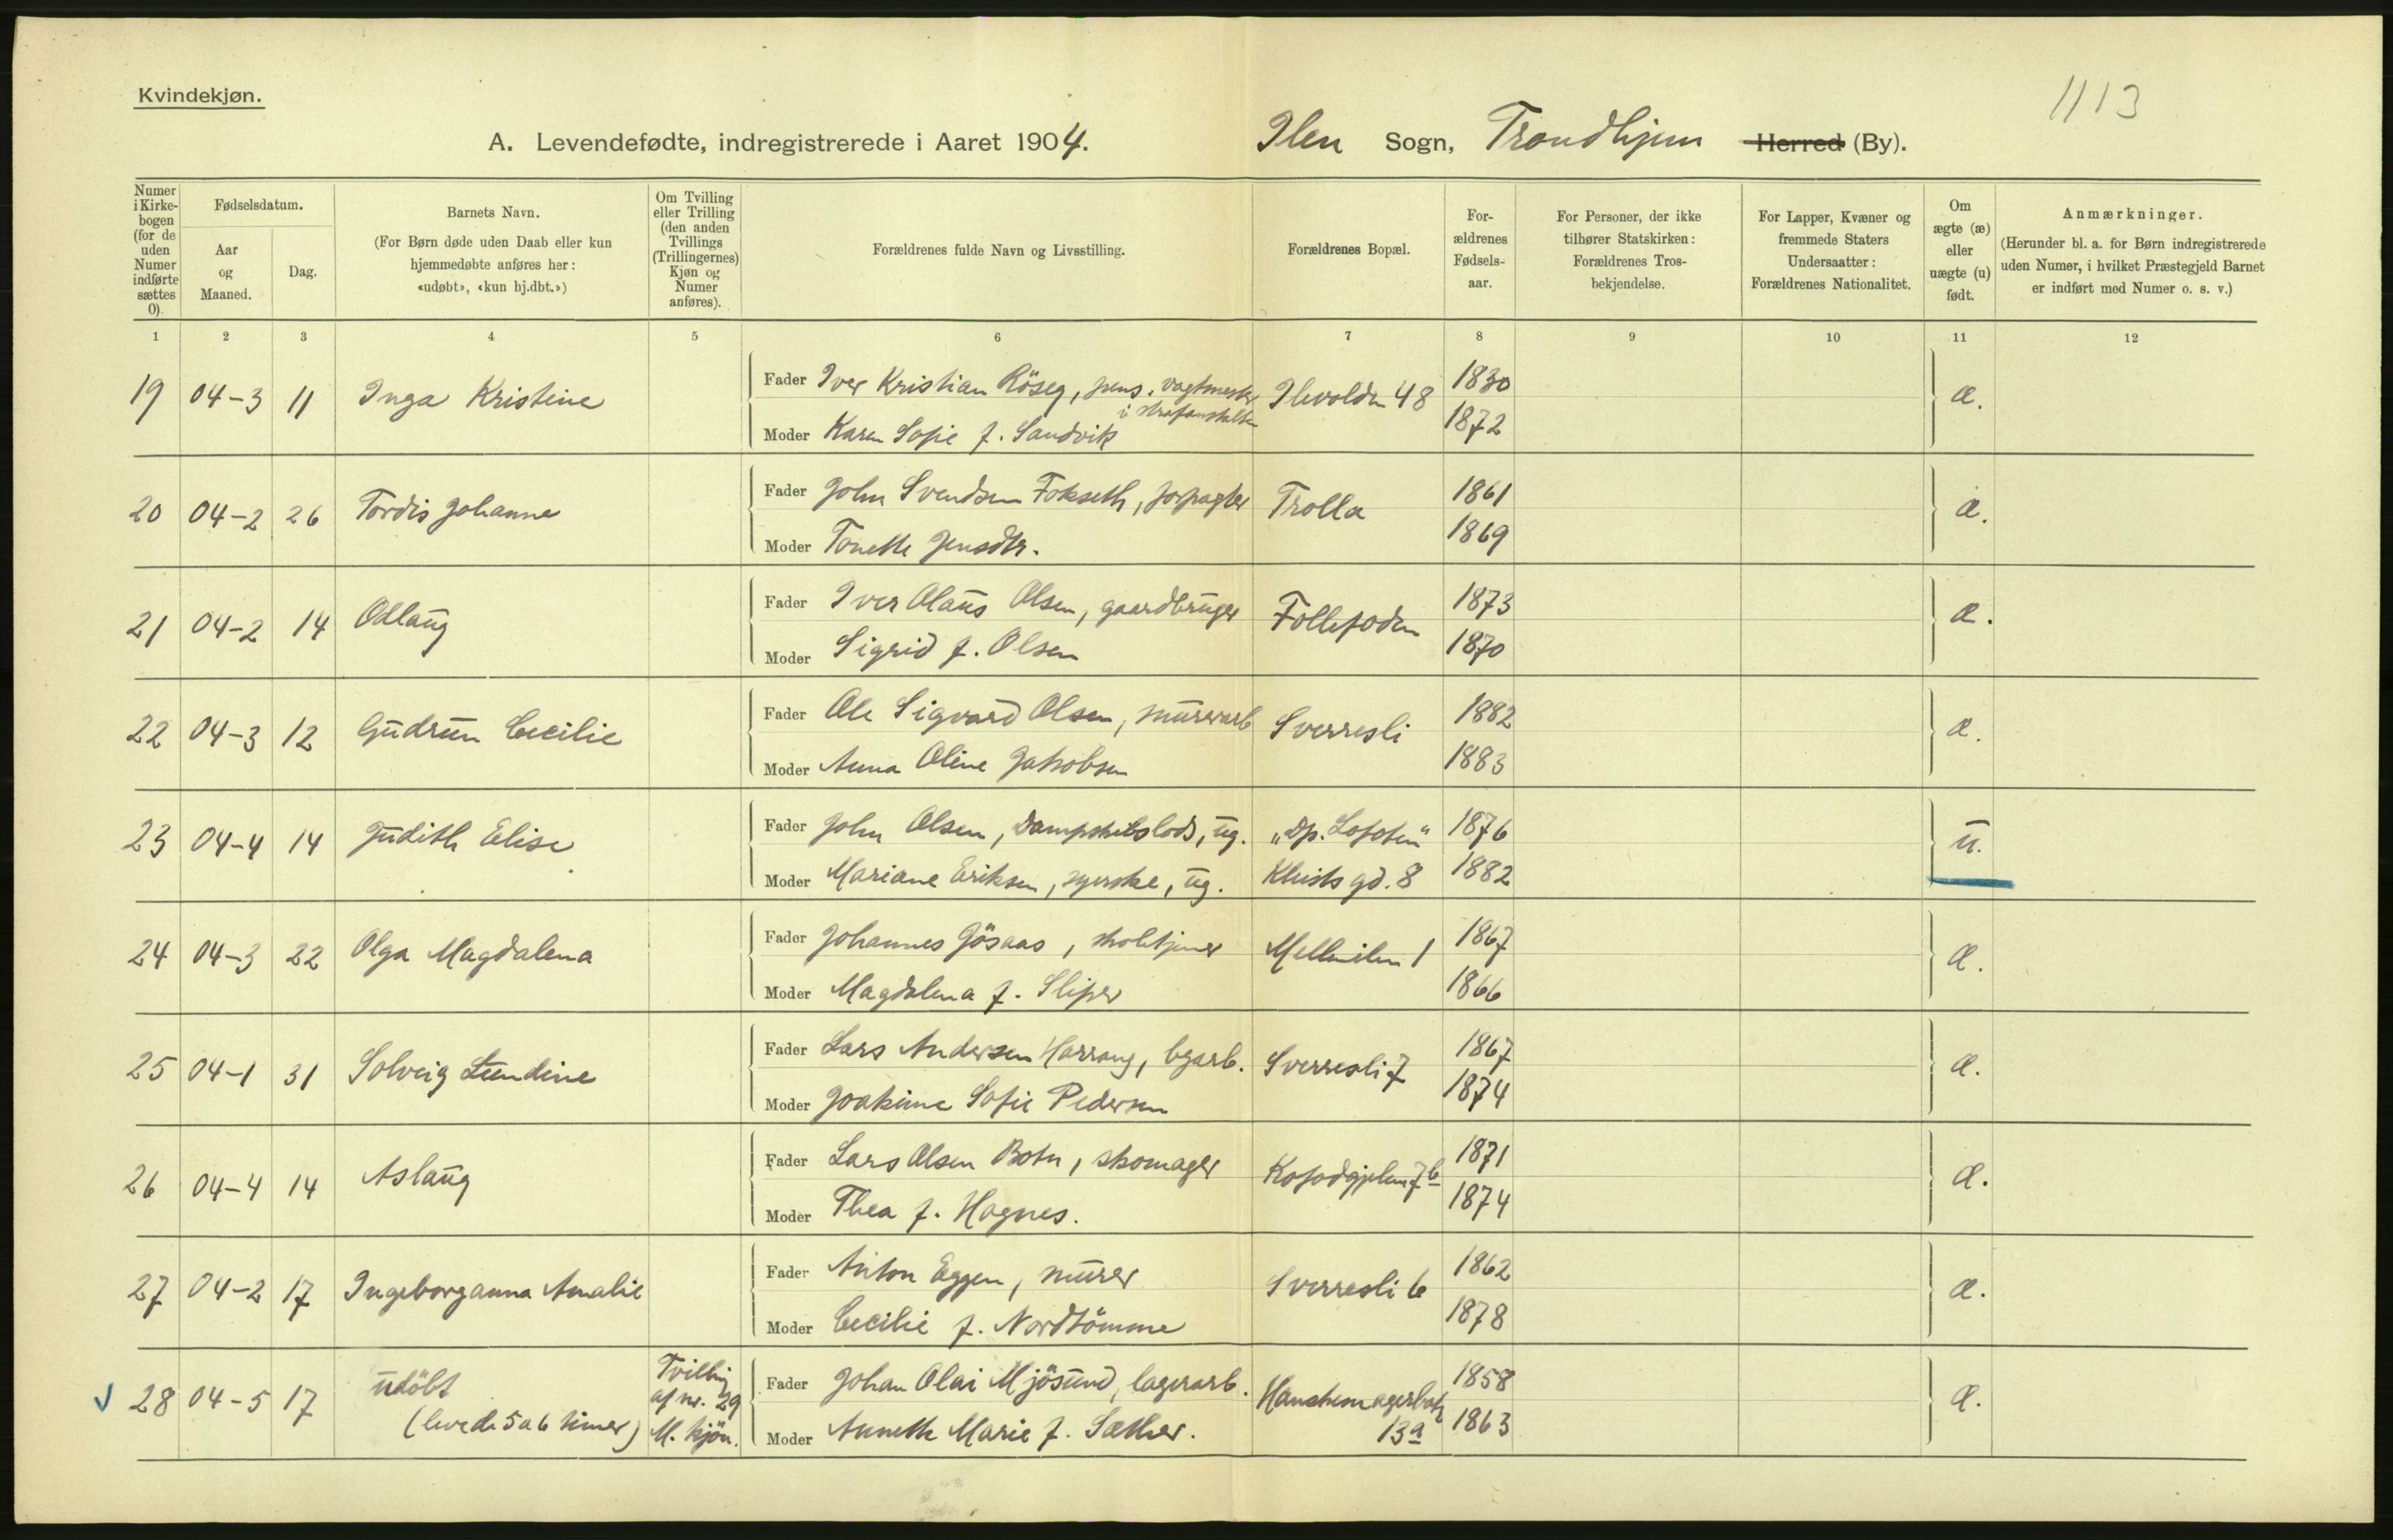 Kvindekjøn.
1113
A. Levendefødte, indregistrerede i Aaret 1904. Ilen Sogn, Trondhjem Herred (By).
Numer i Kirke-bogen (for de uden Numer indførte sættes 0).
Fødselsdatum.
Aar og Maaned.
Dag.
Barnets Navn.
(For Børn døde uden Daab eller kun hjemmedøbte anføres her: «udøbt», «kun hj.dbt.»)
Om Tvilling eller Trilling (den anden Tvillings (Trillingernes) Kjøn og Numer anføres).
Forældrenes fulde Navn og Livsstilling.
Forældrenes Bopæl.
For-ældrenes Fødsels-aar.
For Personer, der ikke tilhører Statskirken: Forældrenes Tros-bekjendelse.
For Lapper, Kvæner og fremmede Staters Undersaatter: Forældrenes Nationalitet.
Om ægte (æ) eller uægte (u) født.
Anmærkninger.
(Herunder bl. a. for Børn indregistrerede uden Numer, i hvilket Præstegjeld Barnet er indført med Numer o. s. v.)
1 2 3 4 5 6 7 8 9 10 11 12
19 04-3 11 Inga Kristine Fader Iver Kristian Röseg, pens. vagtmester i strafanstalten Ilevolden 48 1830 æ.
Moder Karen Sofie f. Sandvik 1872
20 04-2 26 Tordis Johanne Fader John Svendsen Fokseth, forpagter Trolla 1861 æ.
Moder Tonette Jensdtr. 1869
21 04-2 14 Odlaug Fader Iver Olaus Olsen, gaardbruger Follefoden 1873 æ.
Moder Sigrid f. Olsen 1870
22 04-3 12 Gudrun Cecilie Fader Ole Sigvard Olsen, murerarb Sverresli 1882 æ.
Moder Anna Oline Jakobsen 1883
23 04-4 14 Judith Elise Fader John Olsen, Dampskibslods, ug. „Dp. Lofoten" 1876 u.
Moder Mariane Eriksen, syerske, ug. Kleists gd. 8 1882
24 04-3 22 Olga Magdalena Fader Johannes Jösaas, skoletjener Mellemilen 1 1867 æ.
Moder Magdalena f. Sliper 1866
25 04-1 31 Solveig Lundine Fader Lars Andersen Harrang, bgarb. Sverresli 7 1867 æ.
Moder Joakime Sofie Pedersen 1874
26 04-4 14 Aslaug Fader Lars Olsen Botn, skomager 7b 1871 æ.
Moder Thea f. Hagnes. 1874
27 04-2 17 Ingeborganna Amalie Fader Anton Eggen, murer Sverresli 6 1862 æ.
Moder Cecilie f. Nordtömme 1878
28 04-5 17 udöbt (levede 5 a 6 timer) Tvilling af nr. 29 M. kjön. Fader Johan Olai Mjösund, lagerarb. 13a 1858 æ.
Moder Annette Marie f. Sæther. 1863